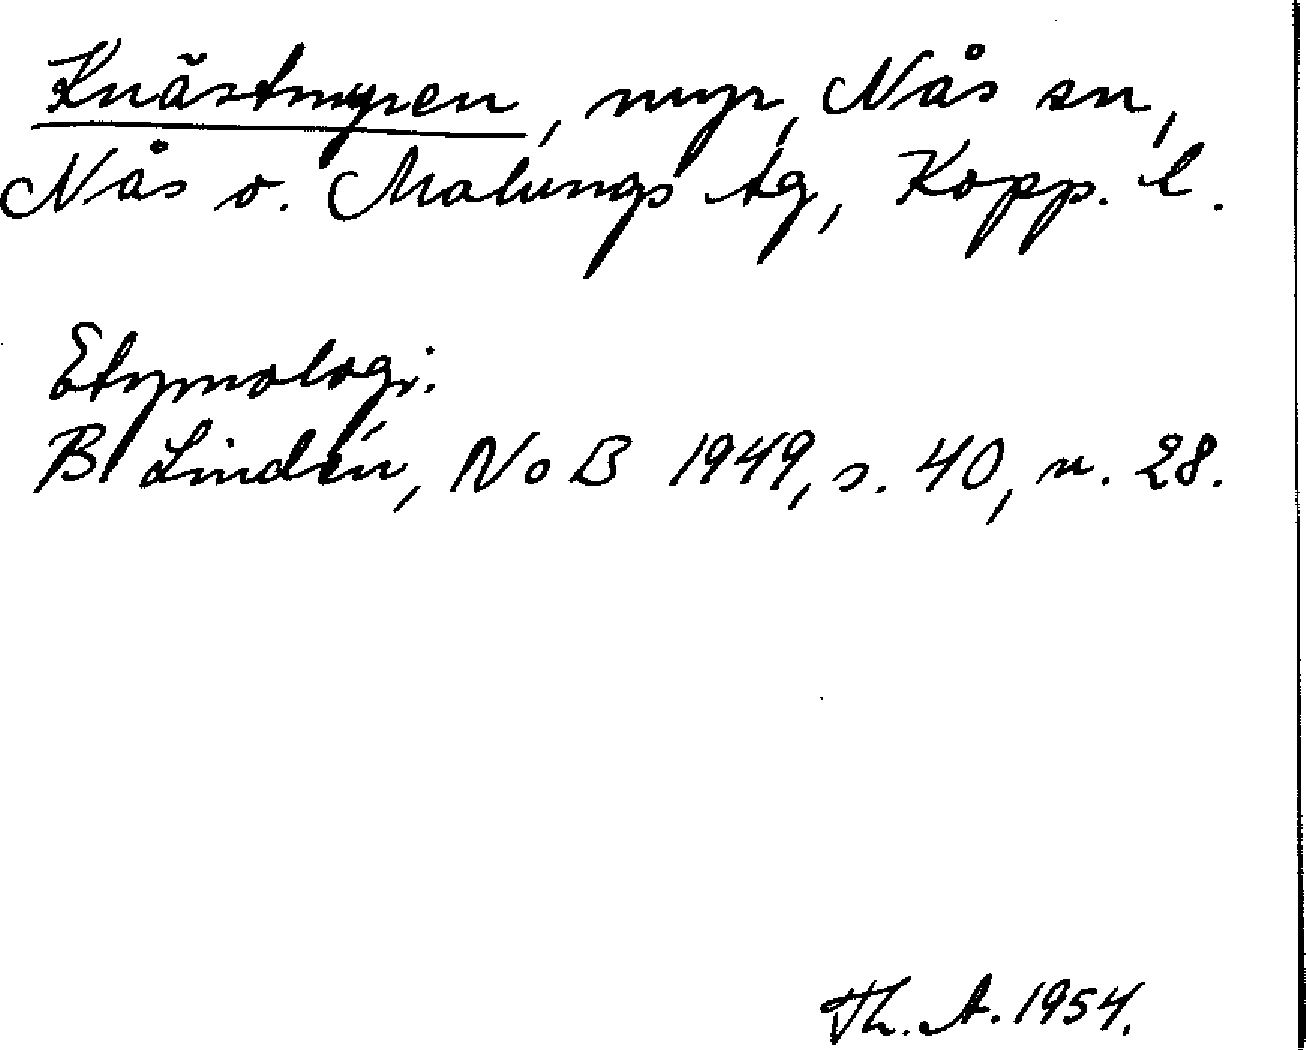 Knästmyren, myr, Nås sn,
Nås o. Malungs tg, Kopp. l.
Etymologi:
B. Lindén, NoB 1949, s. 40, n. 28.
Th. A. 1954.